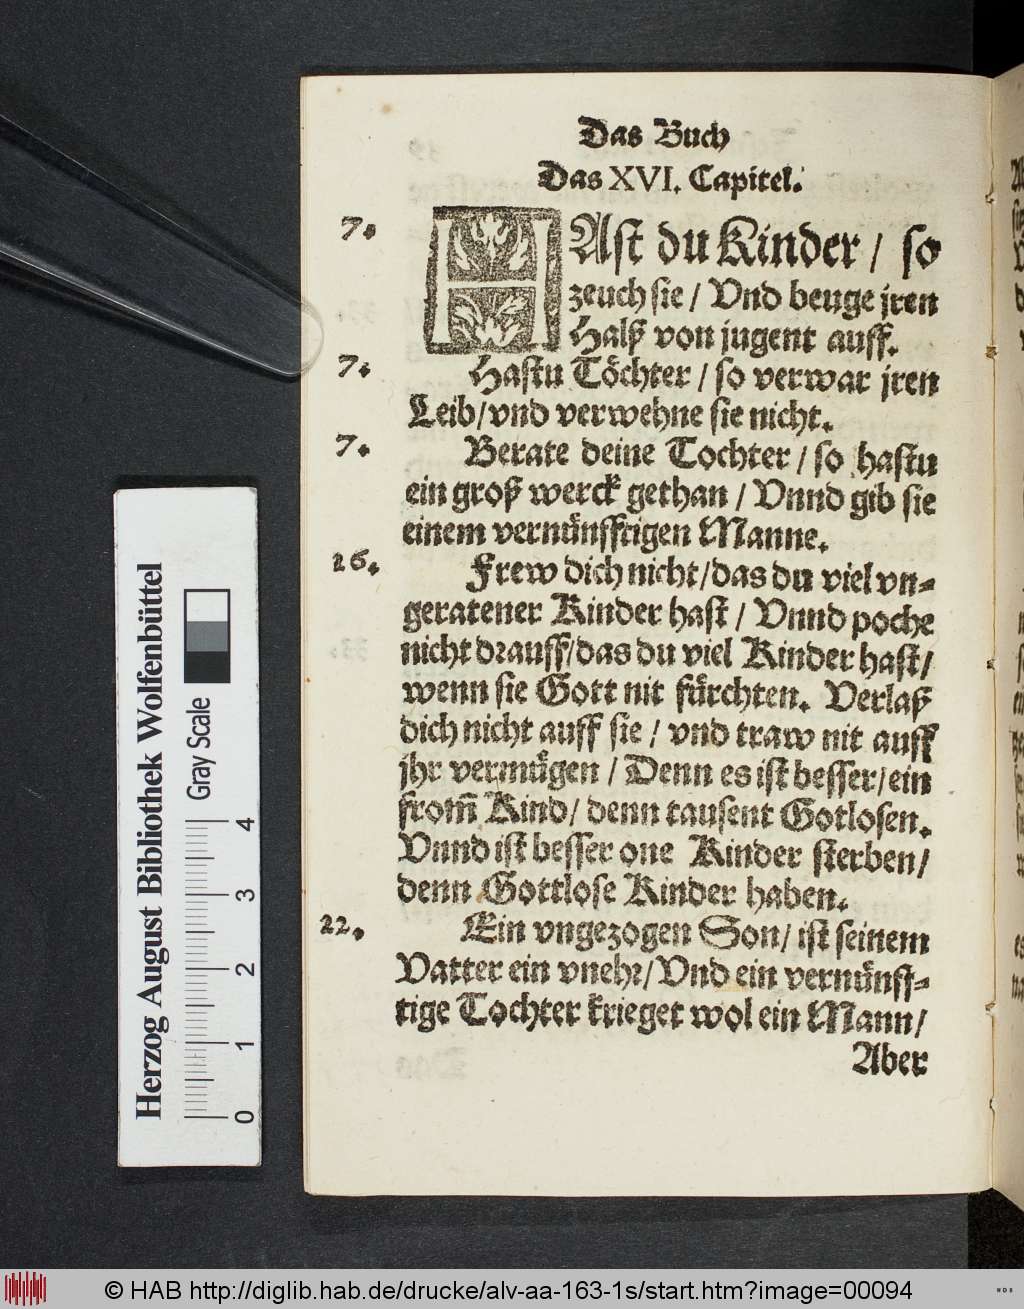 Das Buch
Das XVI. Capitel.
7. HAst du Kinder / so
zeuch sie / Vnd beuge jren
Halß von jugent auff.
7. Hastu Töchter / so verwar jren
Leib/vnd verwehne sie nicht.
7. Berate deine Tochter / so hastu
ein groß werck gethan / Vnnd gib sie
einem vernünfftigen Manne.
26. Frew dich nicht/das du viel vn-
geratener Kinder hast / Vnnd poche
nicht drauff/das du viel Kinder hast/
wenn sie Gott nit fürchten. Verlaß
dich nicht auff sie / vnd traw nit auff
jhr vermügen / Denn es ist besser/ein
from̄ Kind/ denn tausent Gotlosen.
Vnnd ist besser one Kinder sterben/
denn Gottlose Kinder haben.
22. Ein vngezogen Son/ ist seinem
Vatter ein vnehr/Vnd ein vernünff-
tige Tochter krieget wol ein Mann/
Aber
Herzog August Bibliothek Wolfenbüttel
Gray Scale
0 1 2 3 4
© HAB http://diglib.hab.de/drucke/alv-aa-163-1s/start.htm?image=00094